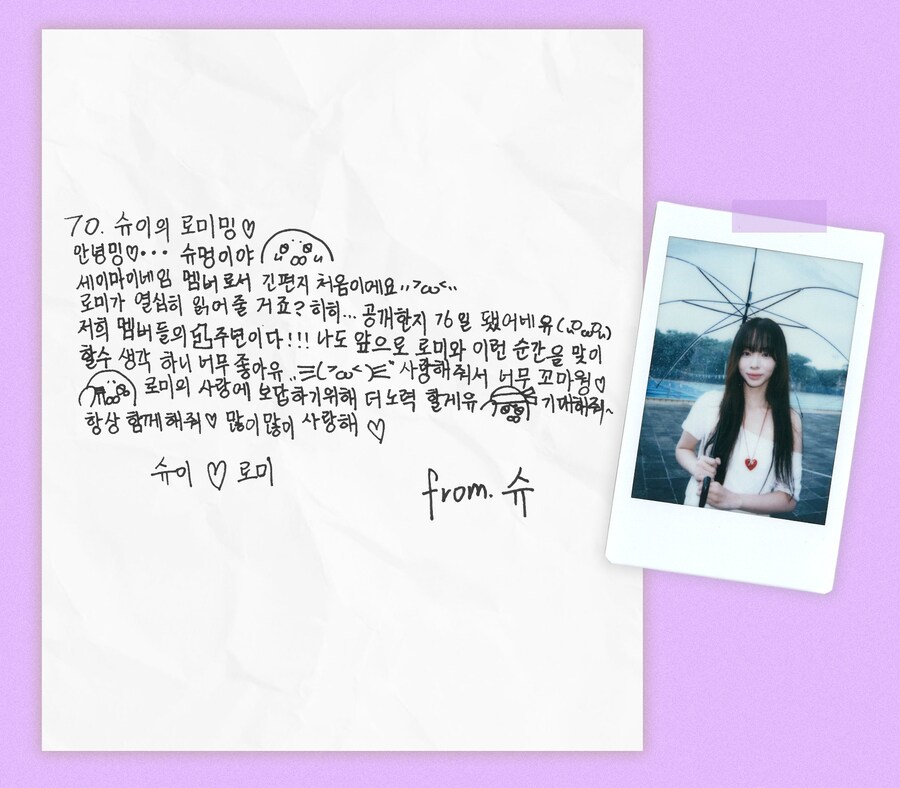 TO. 슈이의 로미밍♡
안녕밍♡··· 슈명이야
세이마이네임 멤버로서 긴편지 처음이에요
로미가 열심히 읽어줄 거죠? 히히... 공개한지 76일 됐어네유
저희 멤버들의 1주년이다!!! 나도 앞으로 로미와 이런 순간을 맞이
할수 생각 하니 너무 좋아유 사랑해줘서 너무 꼬마웡♡
로미의 사랑에 보답하기위해 더 노력 할게유 기대해줘~
항상 함께해줘♡ 많이많이 사랑해 ♡
슈이 ♡ 로미
from. 슈